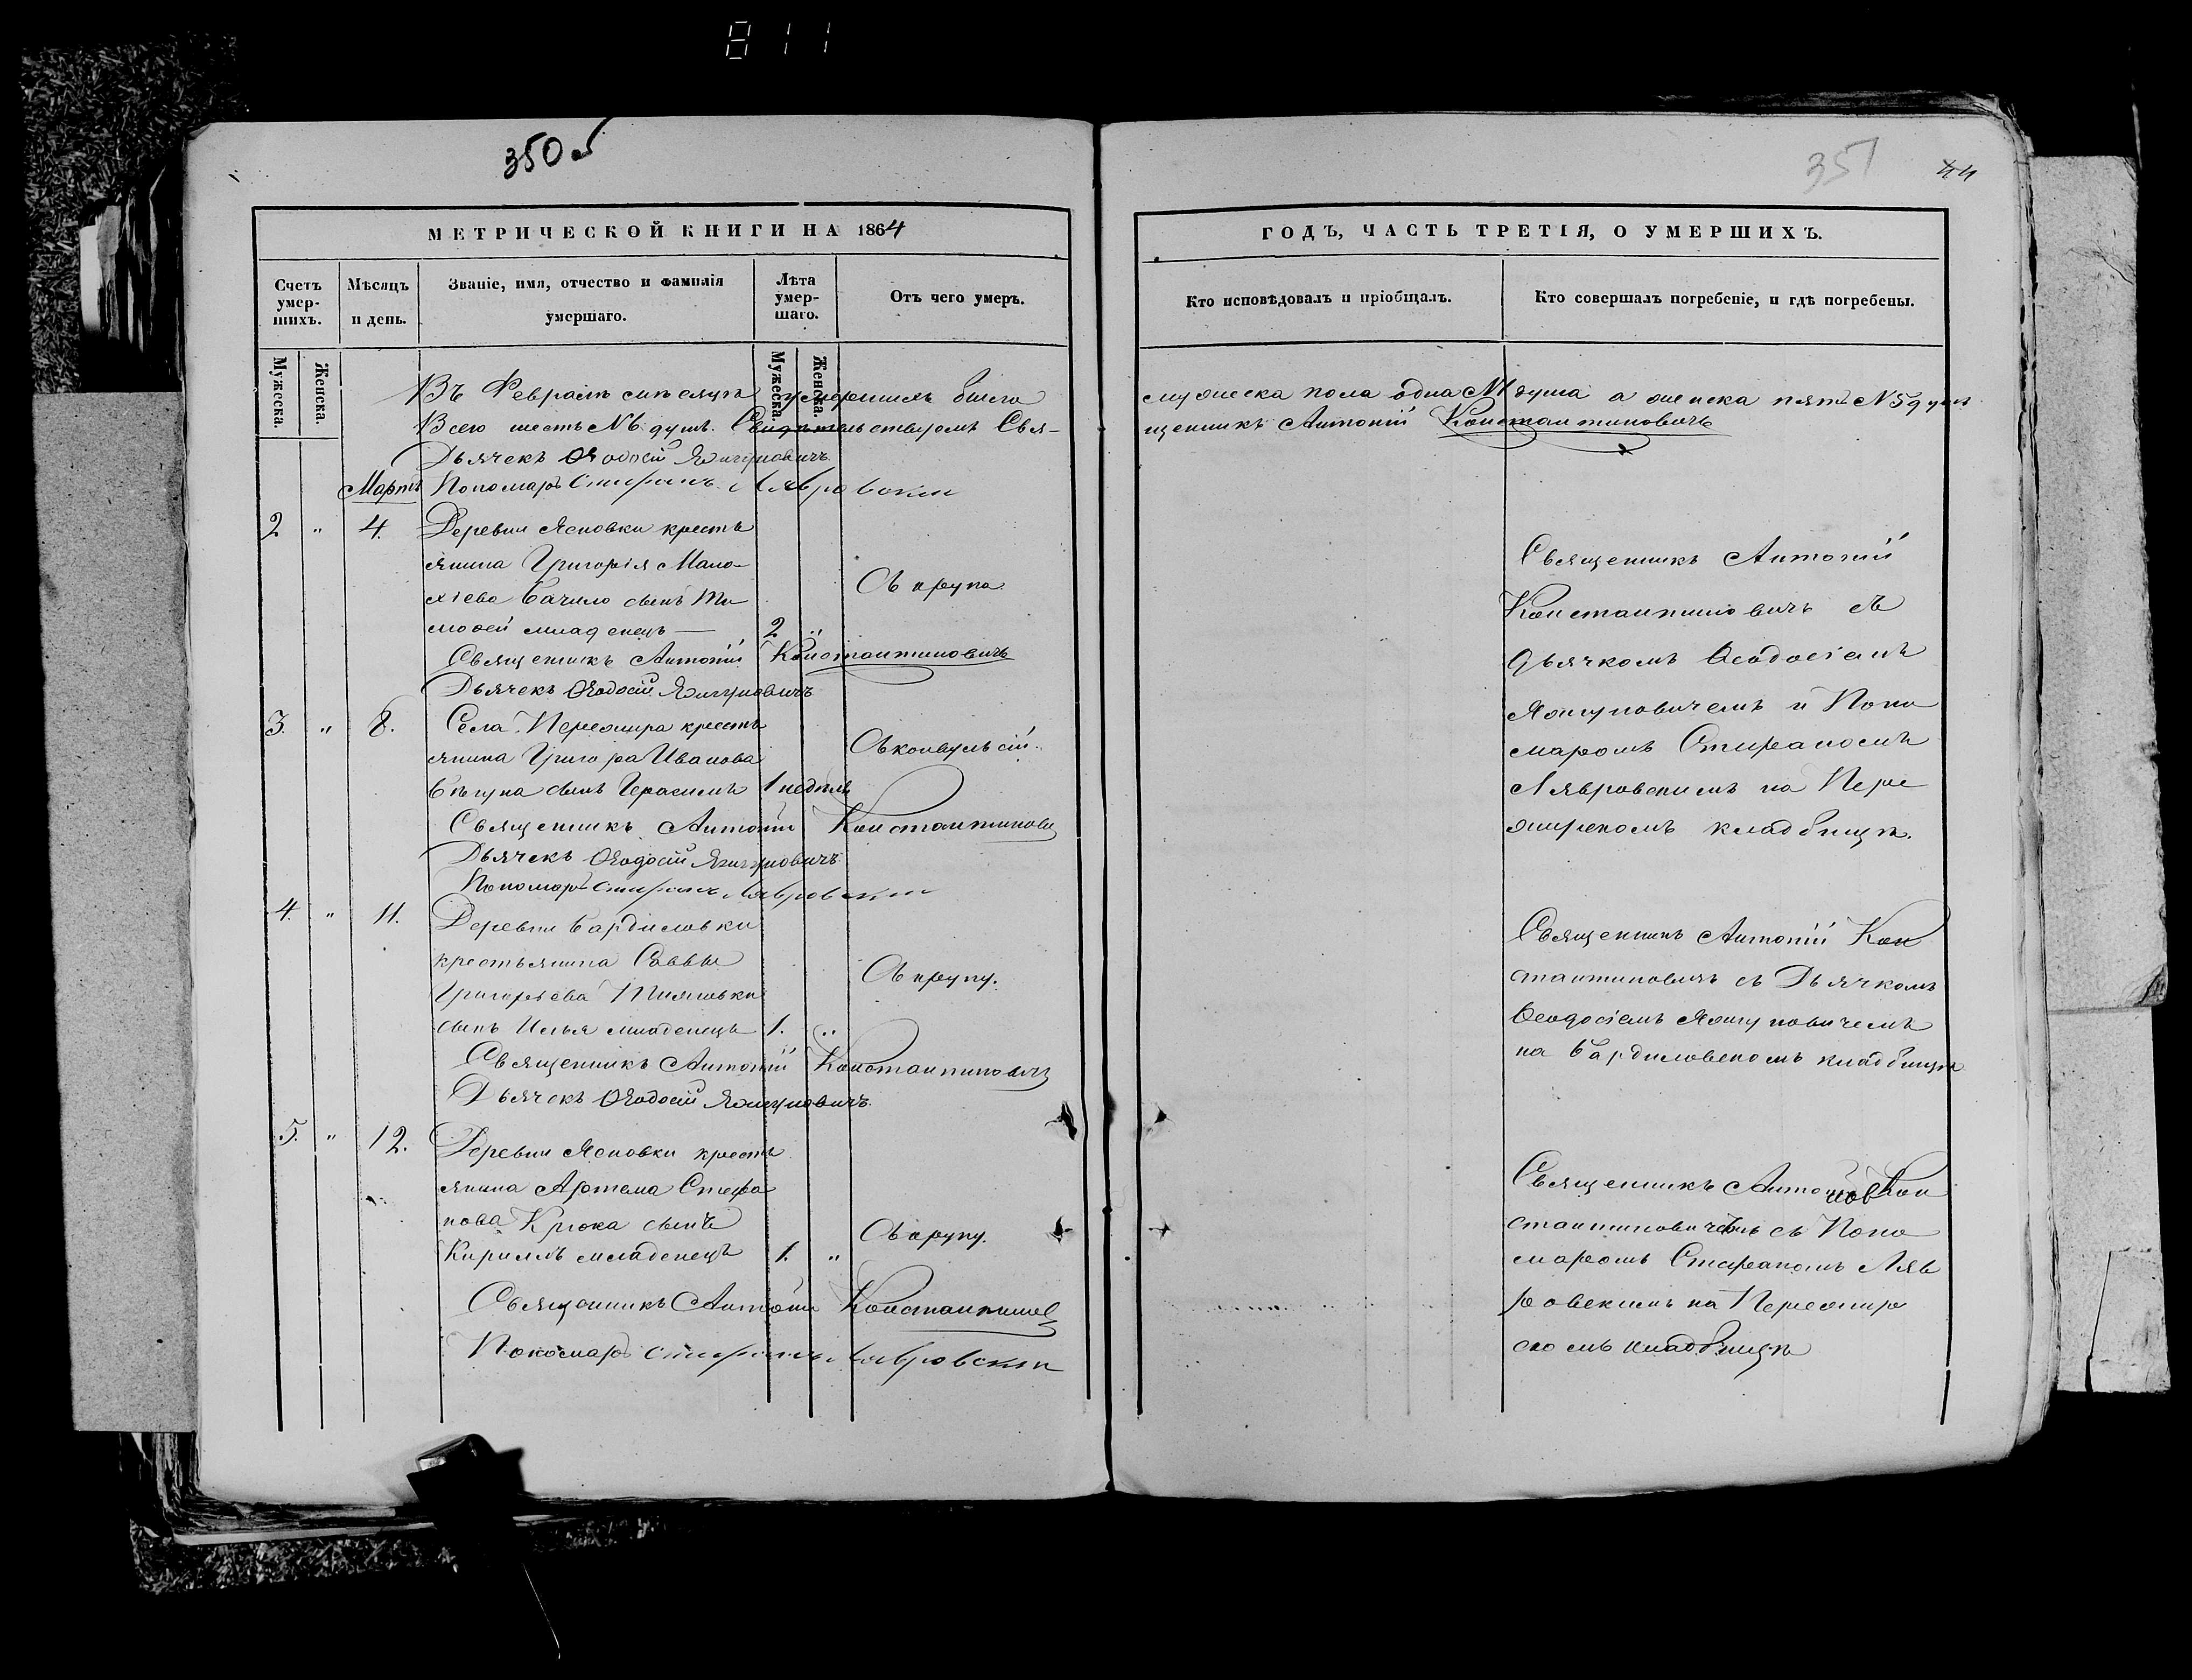 811
350 об
351
44
МЕТРИЧЕСКОЙ КНИГИ НА 1864
Счетъ умер-
шихъ.
Мѣсяцъ
и день.
Званіе, имя, отчество и фамилія
умершаго.
Лѣта
умер-
шаго.
Отъ чего умеръ.
Мужеска.
Женска.
Мужеска.
Женска.
Въ Февралѣ мѣсяцѣ умершихъ было
Всего шесть №6 душъ. Свидѣтельствуемъ Свя-
Дьячекъ Ѳеодосій Яжгуновичъ
Мартъ Пономарь Стефанъ Лавровскій
2 " 4. Деревни Ясновки кресть
янина Григорія Мало-
хіева Бачило сынъ Ти
моѳей младенецъ — 2 "
Съ крупа.
Священникъ Антоній Константиновичъ
Дьячекъ Ѳеодосій Яжгуновичъ
3. " 8. Села Пережира кресть
янина Григора Иванова
Бѣгуна сынъ Герасимъ 1 недѣли
Съ конвульсій.
Священникъ Антоній Константинови
Дьячекъ Ѳеодосій Яжгуновичъ
Пономарь Стефанъ Лавровскій
4. " 11. Деревни Бардиловки
крестьянина Саввы
Григорьева
сынъ Илья младенецъ 1. "
Съ крупу.
Священникъ Антоній Константинович
Дьячекъ Ѳеодосій Яжгуновичъ
5. " 12. Деревни Ясновки кресть
янина Артема Стефа
нова Крюка сынъ
Кириллъ младенецъ 1. "
Съ крупу.
Священникъ Антоній Константинов
Пономарь Стефанъ Лавровскій
ГОДЪ, ЧАСТЬ ТРЕТІЯ, О УМЕРШИХЪ.
Кто исповѣдовалъ и пріобщалъ.
Кто совершалъ погребеніе, и гдѣ погребены.
мужеска пола одна №1 душа а женска пять №5 душъ
щенникъ Антоній Константиновичъ
Священникъ Антоній
Константиновичъ съ
дьячкомъ Ѳеодосіемъ
Яжгуновичемъ и Поно
маромъ Стефаномъ
Лявровскимъ на Пере
жирскомъ кладбищѣ.
Священникъ Антоній Кон
стантиновичъ съ Дьячкомъ
Ѳеодосіемъ Яжгуновичемъ
на Бардиловскомъ кладбищѣ
Священникъ Антоній Кон
стантиновичъ съ Поно
маромъ Стефаномъ Ляв
ровскимъ на Пережир
скомъ кладбищѣ